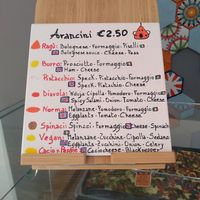 Arancini €2.50
Ragù: Bolognese-Formaggio-Piselli
Bolognese sauce-Cheese-Peas
Burro: Prosciutto-Formaggio
Ham-Cheese
Pistacchio: Speck-Pistacchio-Formaggio
Speck-Pistachio-Cheese
Diavola: Nduja-Cipolla-Pomodoro-Formaggio
Spicy Salami-Onion-Tomato-Cheese
Norma: Melanzane-Pomodoro-Formaggio
Eggplants-Tomato-Cheese
Spinaci: Spinaci-Formaggio Cheese-Spinach
Vegan: Melanzane-Zucchine-Cipolla-Sedano
Eggplants-Zucchini-Onion-Celery
Cacio e Pepe: Caciocheese-Blackpepper